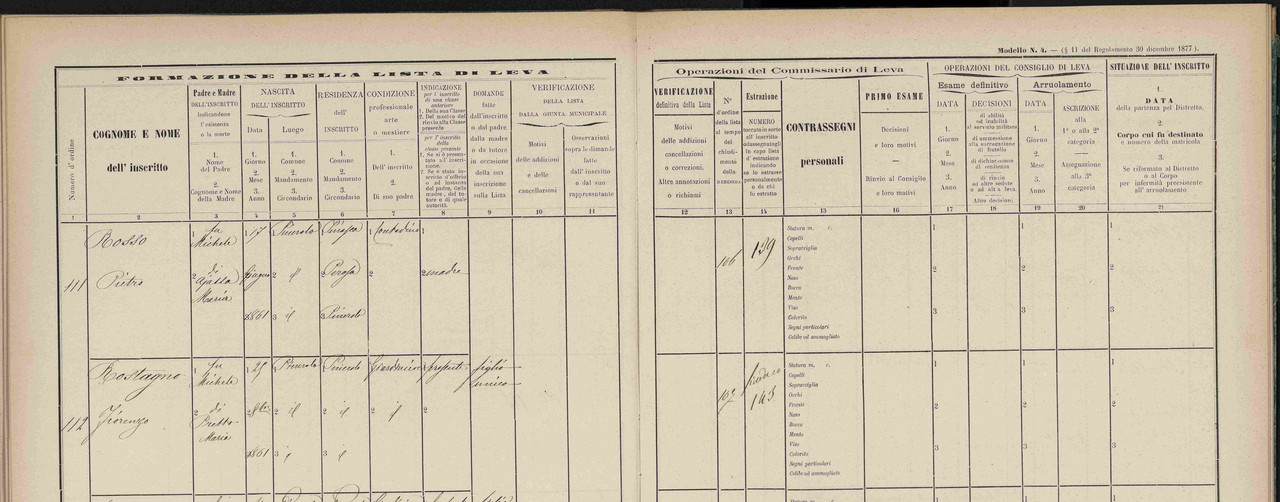 Modello N. 4. — (§ 11 del Regolamento 30 dicembre 1877).
FORMAZIONE DELLA LISTA DI LEVA
Numero d'ordine
COGNOME E NOME
dell' inscritto
Padre e Madre
DELL'INSCRITTO
indicandone
l' esistenza
o la morte
1.
Nome
del Padre
2.
Cognome e Nome
della Madre
NASCITA
DELL' INSCRITTO
Data
1.
Giorno
2.
Mese
3.
Anno
Luogo
1.
Comune
2.
Mandamento
3.
Circondario
RESIDENZA
dell'
INSCRITTO
1.
Comune
2.
Mandamento
3.
Circondario
CONDIZIONE
professionale
arte
o mestiere
1.
Dell' inscritto
2.
Di suo padre
INDICAZIONE
per l' inscritto
di una classe
anteriore
1. Della sua Classe
2. Del motivo del
rinvio alla Classe
presente
per l' inscritto
della
classe presente
DOMANDE
fatte
dall'inscritto
o dal padre
dalla madre
o da tutore
in occasione
della sua
inscrizione
sulla Lista
VERIFICAZIONE
DELLA LISTA
DALLA GIUNTA MUNICIPALE
Motivi
delle addizioni
e delle
cancellazioni
Osservazioni
sopra le dimande
fatte
dall' inscritto
o dal suo
rappresentante
1 2 3 4 5 6 7 8 9 10 11
Operazioni del Commissario di Leva
VERIFICAZIONE
definitiva della Lista
Motivi
delle addizioni
cancellazioni
o correzioni.
Altre annotazioni
o richiami
N°
d'ordine
della lista
al tempo
del
chiudi-
mento
della
Estrazione
NUMERO
toccato in sorte
all' inscritto
CONTRASSEGNI
personali
PRIMO ESAME
Decisioni
e loro motivi
—
Rinvio al Consiglio
e loro motivi
OPERAZIONI DEL CONSIGLIO DI LEVA
Esame definitivo
DATA
1.
Giorno
2.
Mese
3.
Anno
DECISIONI
di abilità
od inabilità
al servizio militare
di ammessione
alla surrogazione
di fratello
di rinvio
ad altre sedute
o ad altra leva
Altre decisioni
Arruolamento
DATA
1.
Giorno
2.
Mese
3.
Anno
ASCRIZIONE
alla
1ª o alla 2ª
categoria
Assegnazione
alla 3ª
categoria
SITUAZIONE DELL' INSCRITTO
1.
DATA
della partenza pel Distretto.
2.
Corpo cui fu destinato
e numero della matricola
3.
Se riformato al Distretto
o al Corpo
per infermità preesistente
all' arruolamento
12 13 14 15 16 17 18 19 20 21
111
Rosso
Pietro
1 fu
Michele
2 di
Agatta
Maria
1 17
Giugno
1861
Pinerolo
2 id
3 id
Perosa
Perosa
Pinerolo
Contadino
2
1
2 madre
106
139
Statura m. c.
Capelli
Sopracciglia
Occhi
Fronte
Naso
Bocca
Mento
Viso
Colorito
Segni particolari
Celibe od ammogliato
1
2
3
1
2
3
1
2
3
112
Rostagno
Fiorenzo
1 fu
Michele
2 di
Maria
1 25
1861
1 Pinerolo
2 id
3 id
Pinerolo
2 id
3 id
Giardiniere
2 id
1
2
figlio
unico
107
Sindaco
143
Statura m. c.
Capelli
Sopracciglia
Occhi
Fronte
Naso
Bocca
Mento
Viso
Colorito
Segni particolari
Celibe od ammogliato
1
2
3
1
2
3
1
2
3